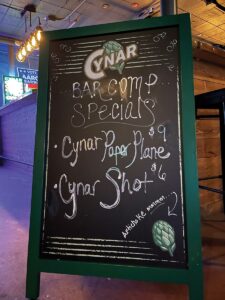 CYNAR
BAR COMP
Specials
• Cynar Paper Plane $9
• Cynar Shot $6
Artichoke